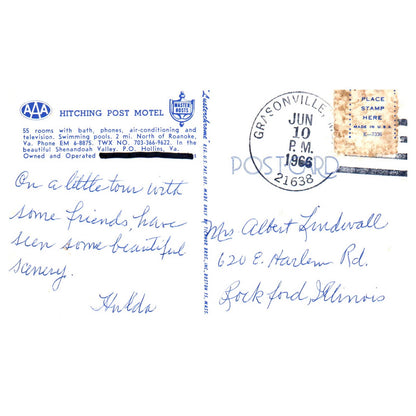 AAA
HITCHING POST MOTEL
MASTER HOSTS
55 rooms with bath, phones, air-conditioning and
television. Swimming pools. 2 mi. North of Roanoke,
Va. Phone EM 6-8875. TWX NO. 703-366-9622. In the
beautiful Shenandoah Valley. P.O. Hollins, Va.
Owned and Operated
On a little tour with
some friends, have
seen some beautiful
scenery.
Hulda
Lusterchrome
GRASONVILLE, M
JUN
10
P.M.
1966
21638
PLACE
STAMP
HERE
MADE IN U.S.A.
POSTCARD
Mrs Albert Lindwall
620 E. Harlem Rd.
Rockford, Illinois